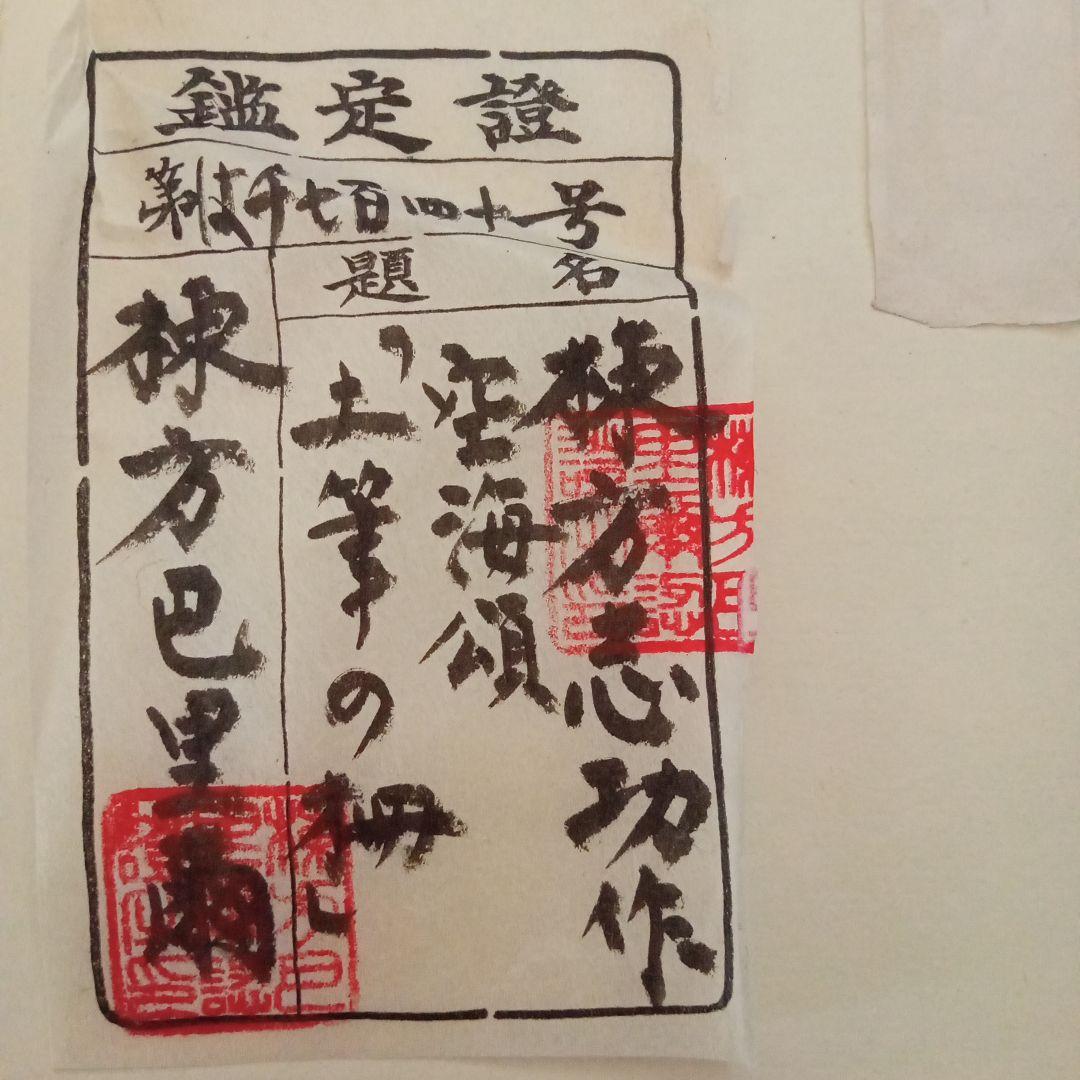 鑑定證
第　千七百四十号
題名
棟方志功作
空海頌
「土筆の柵」
棟方巴里爾